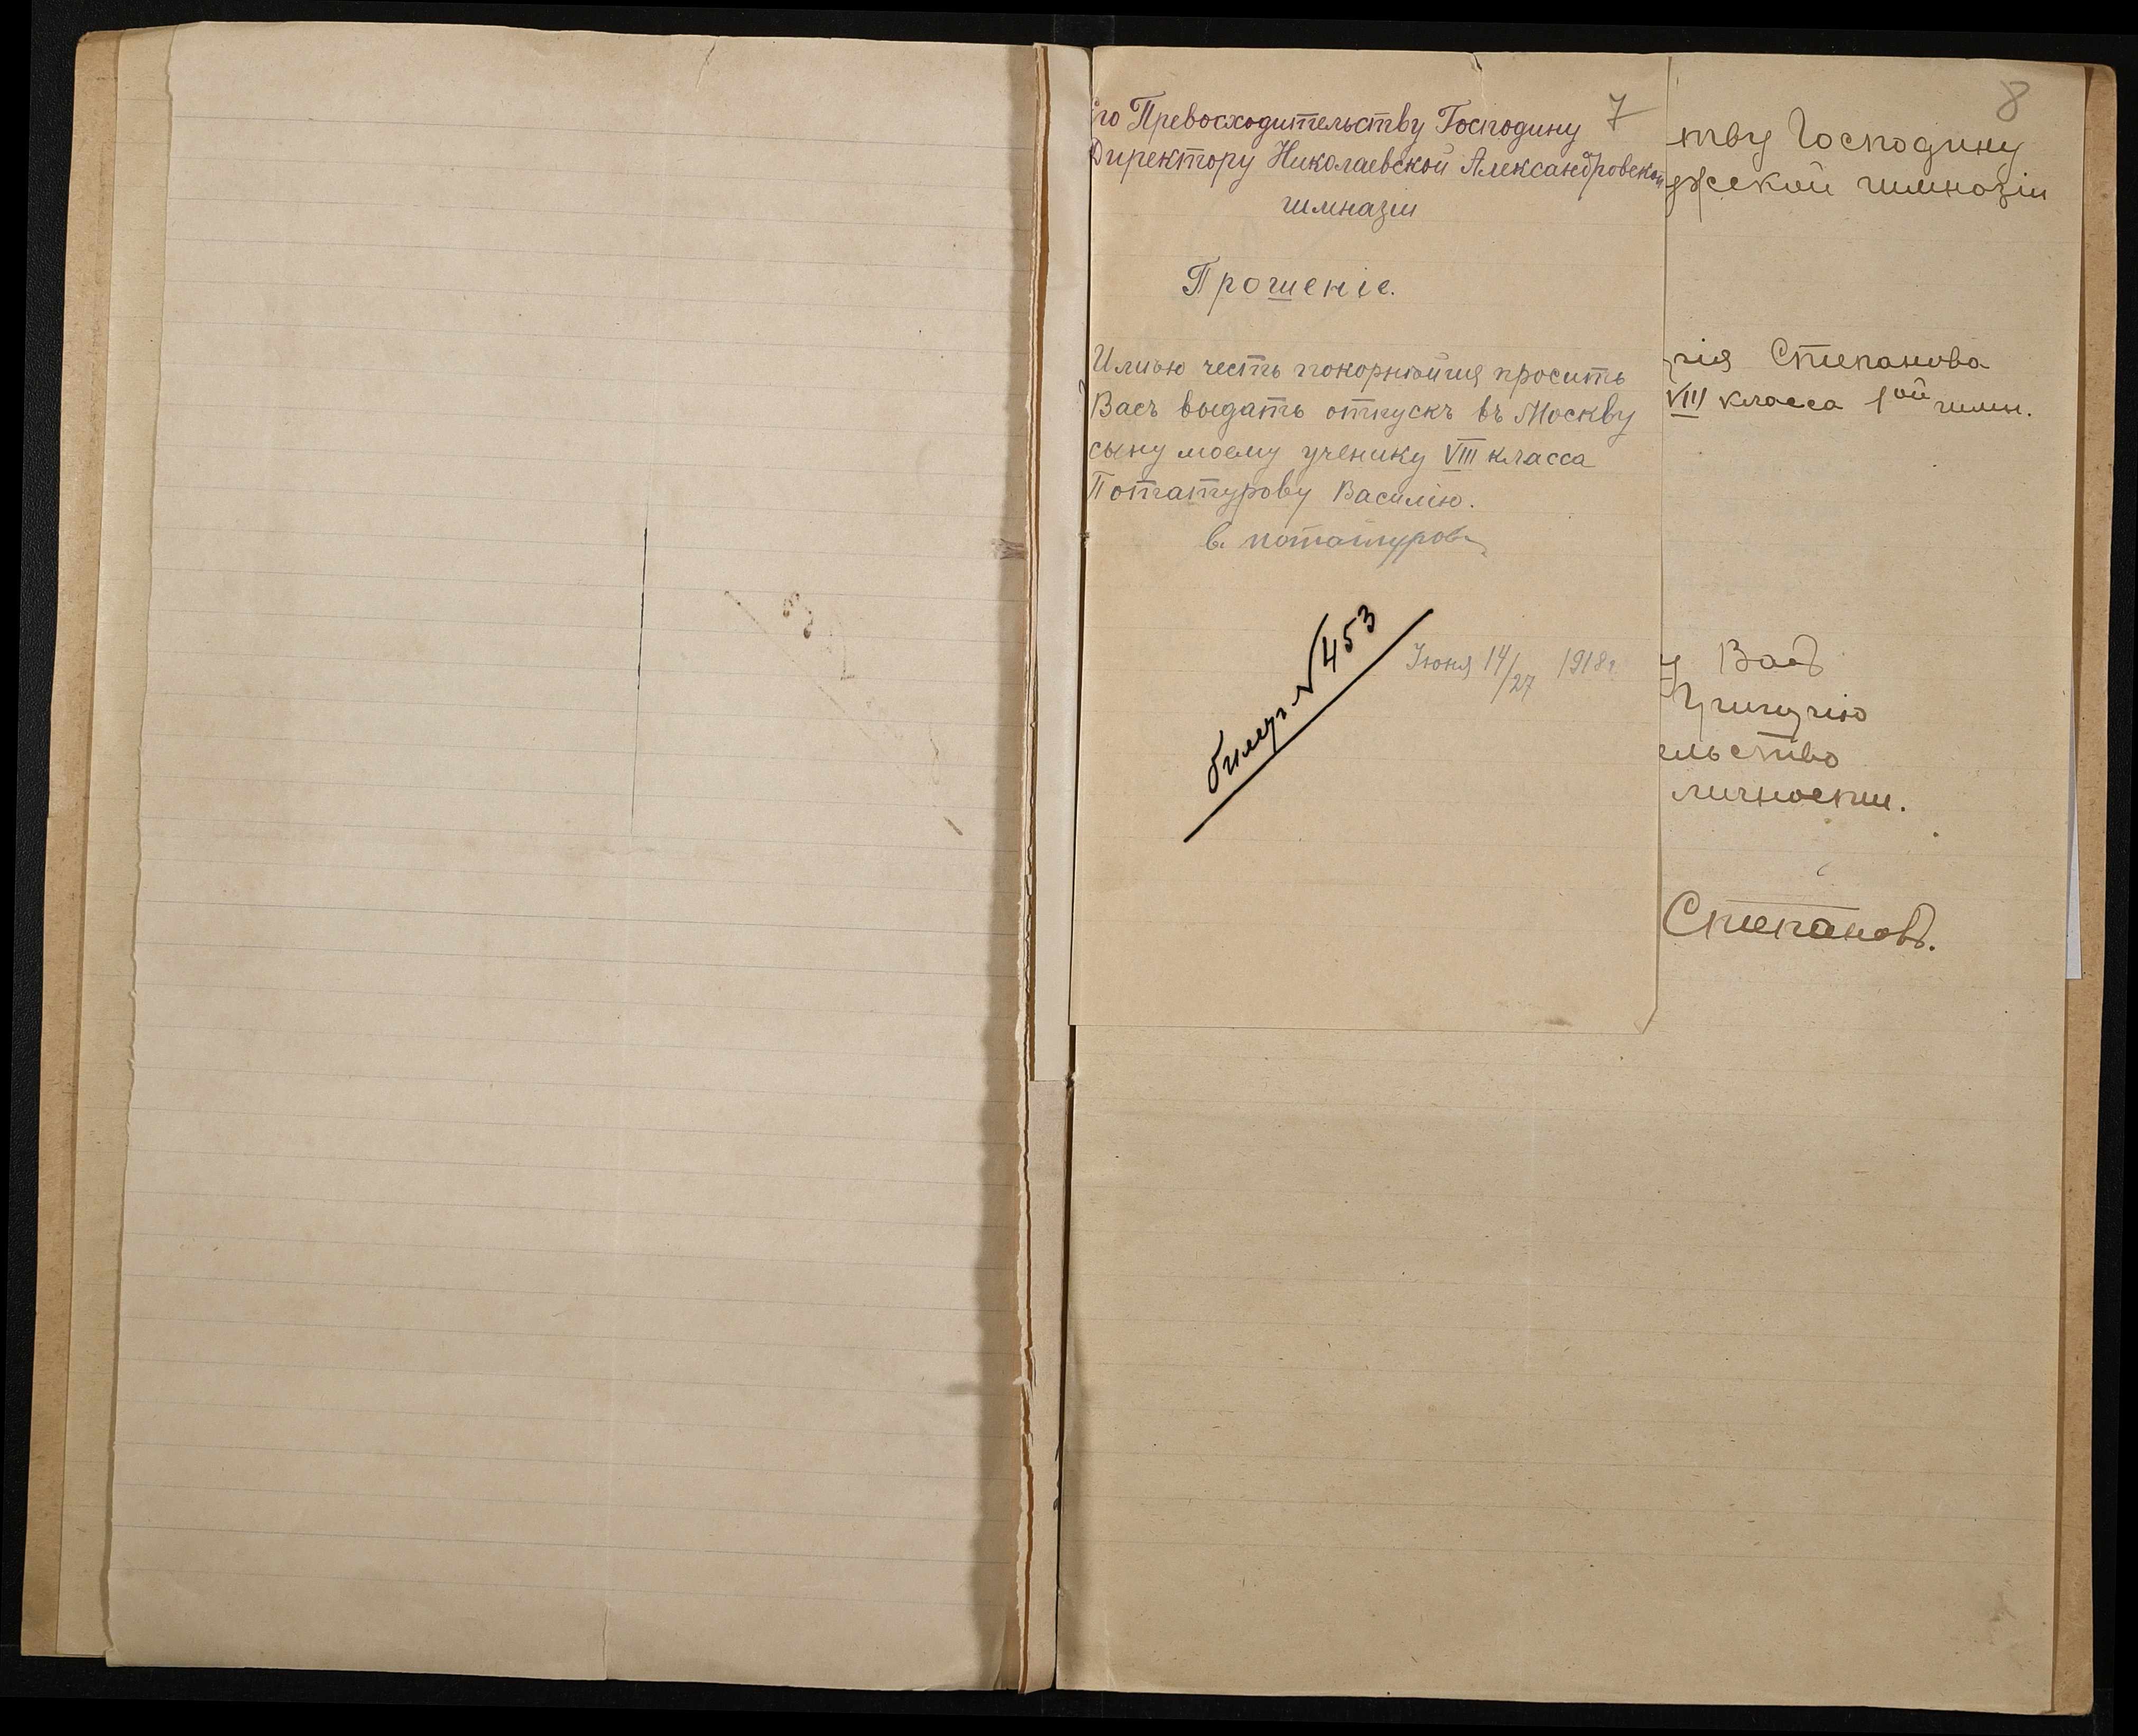 7
го Превосходительству Господину
Директору Николаевской Александровской
гимназіи
Прошеніе.
Имѣю честь покорнѣйше просить
Васъ выдать отпускъ въ Москву
сыну моему ученику VIII класса
Потатурову Василію.
В. Потатуровъ
Іюня 14/27 1918 г.
билетъ № 453
8
тву Господину
жской гимназіи
рія Степанова
VIII класса 1ой гимн.
Васъ
Григорію
ельство
личности.
Степановъ.